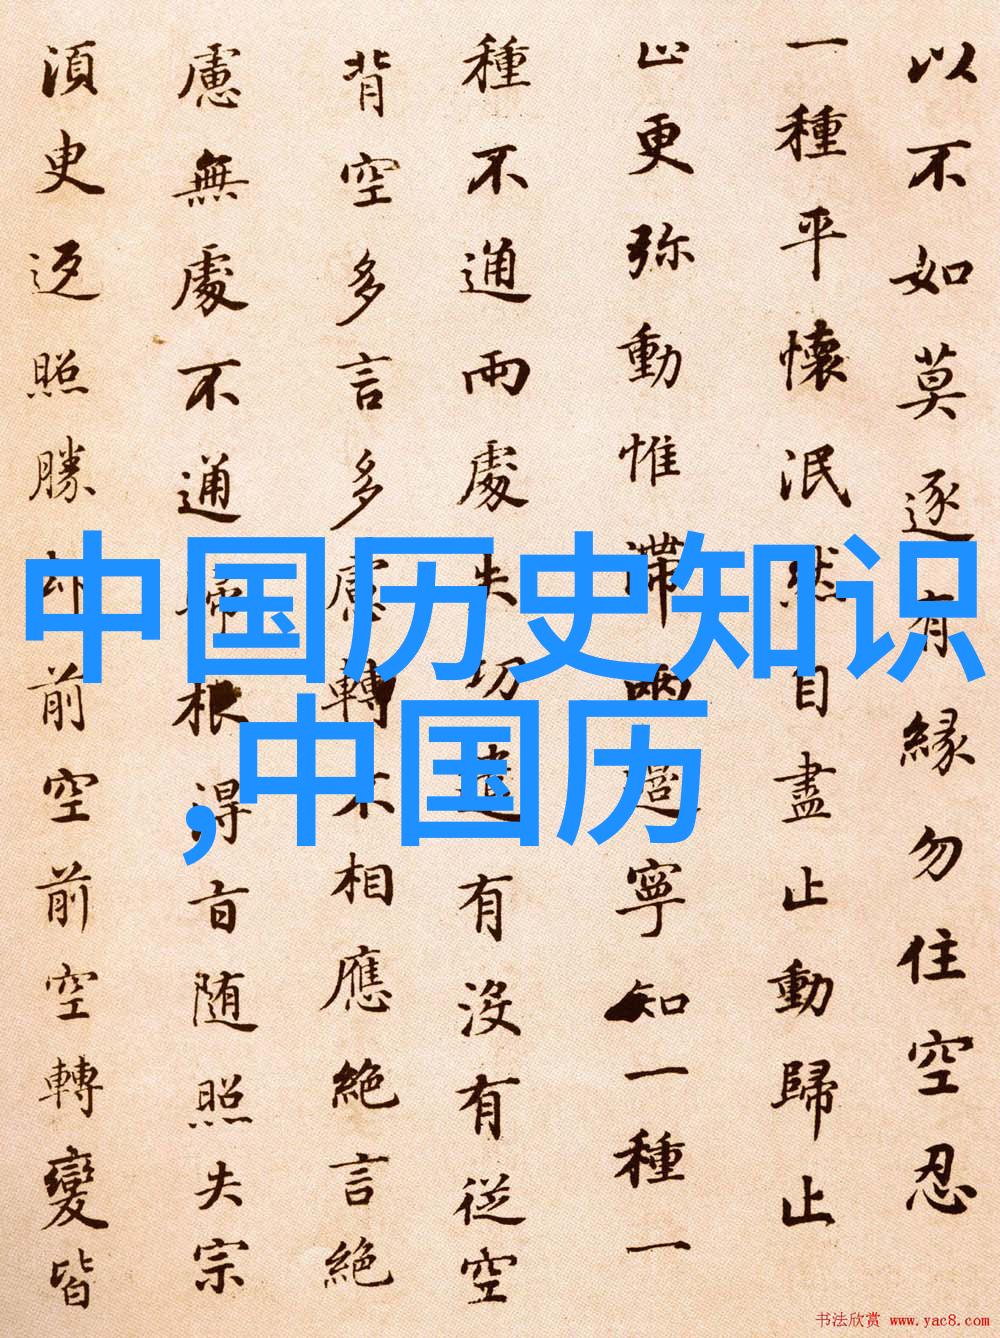 以不如莫逐有緣勿住空忍
一種平懷泯然自盡止動歸止
止更弥動惟滯兩邊寧知一種一
種不通兩處失功遣有沒有從空
背空多言多慮轉不相應絶言絶
慮無處不通歸根得旨随照失宗
須臾返照勝却前空前空轉變皆
中国历史知识
,中国历
书法欣赏 www.yac8.com